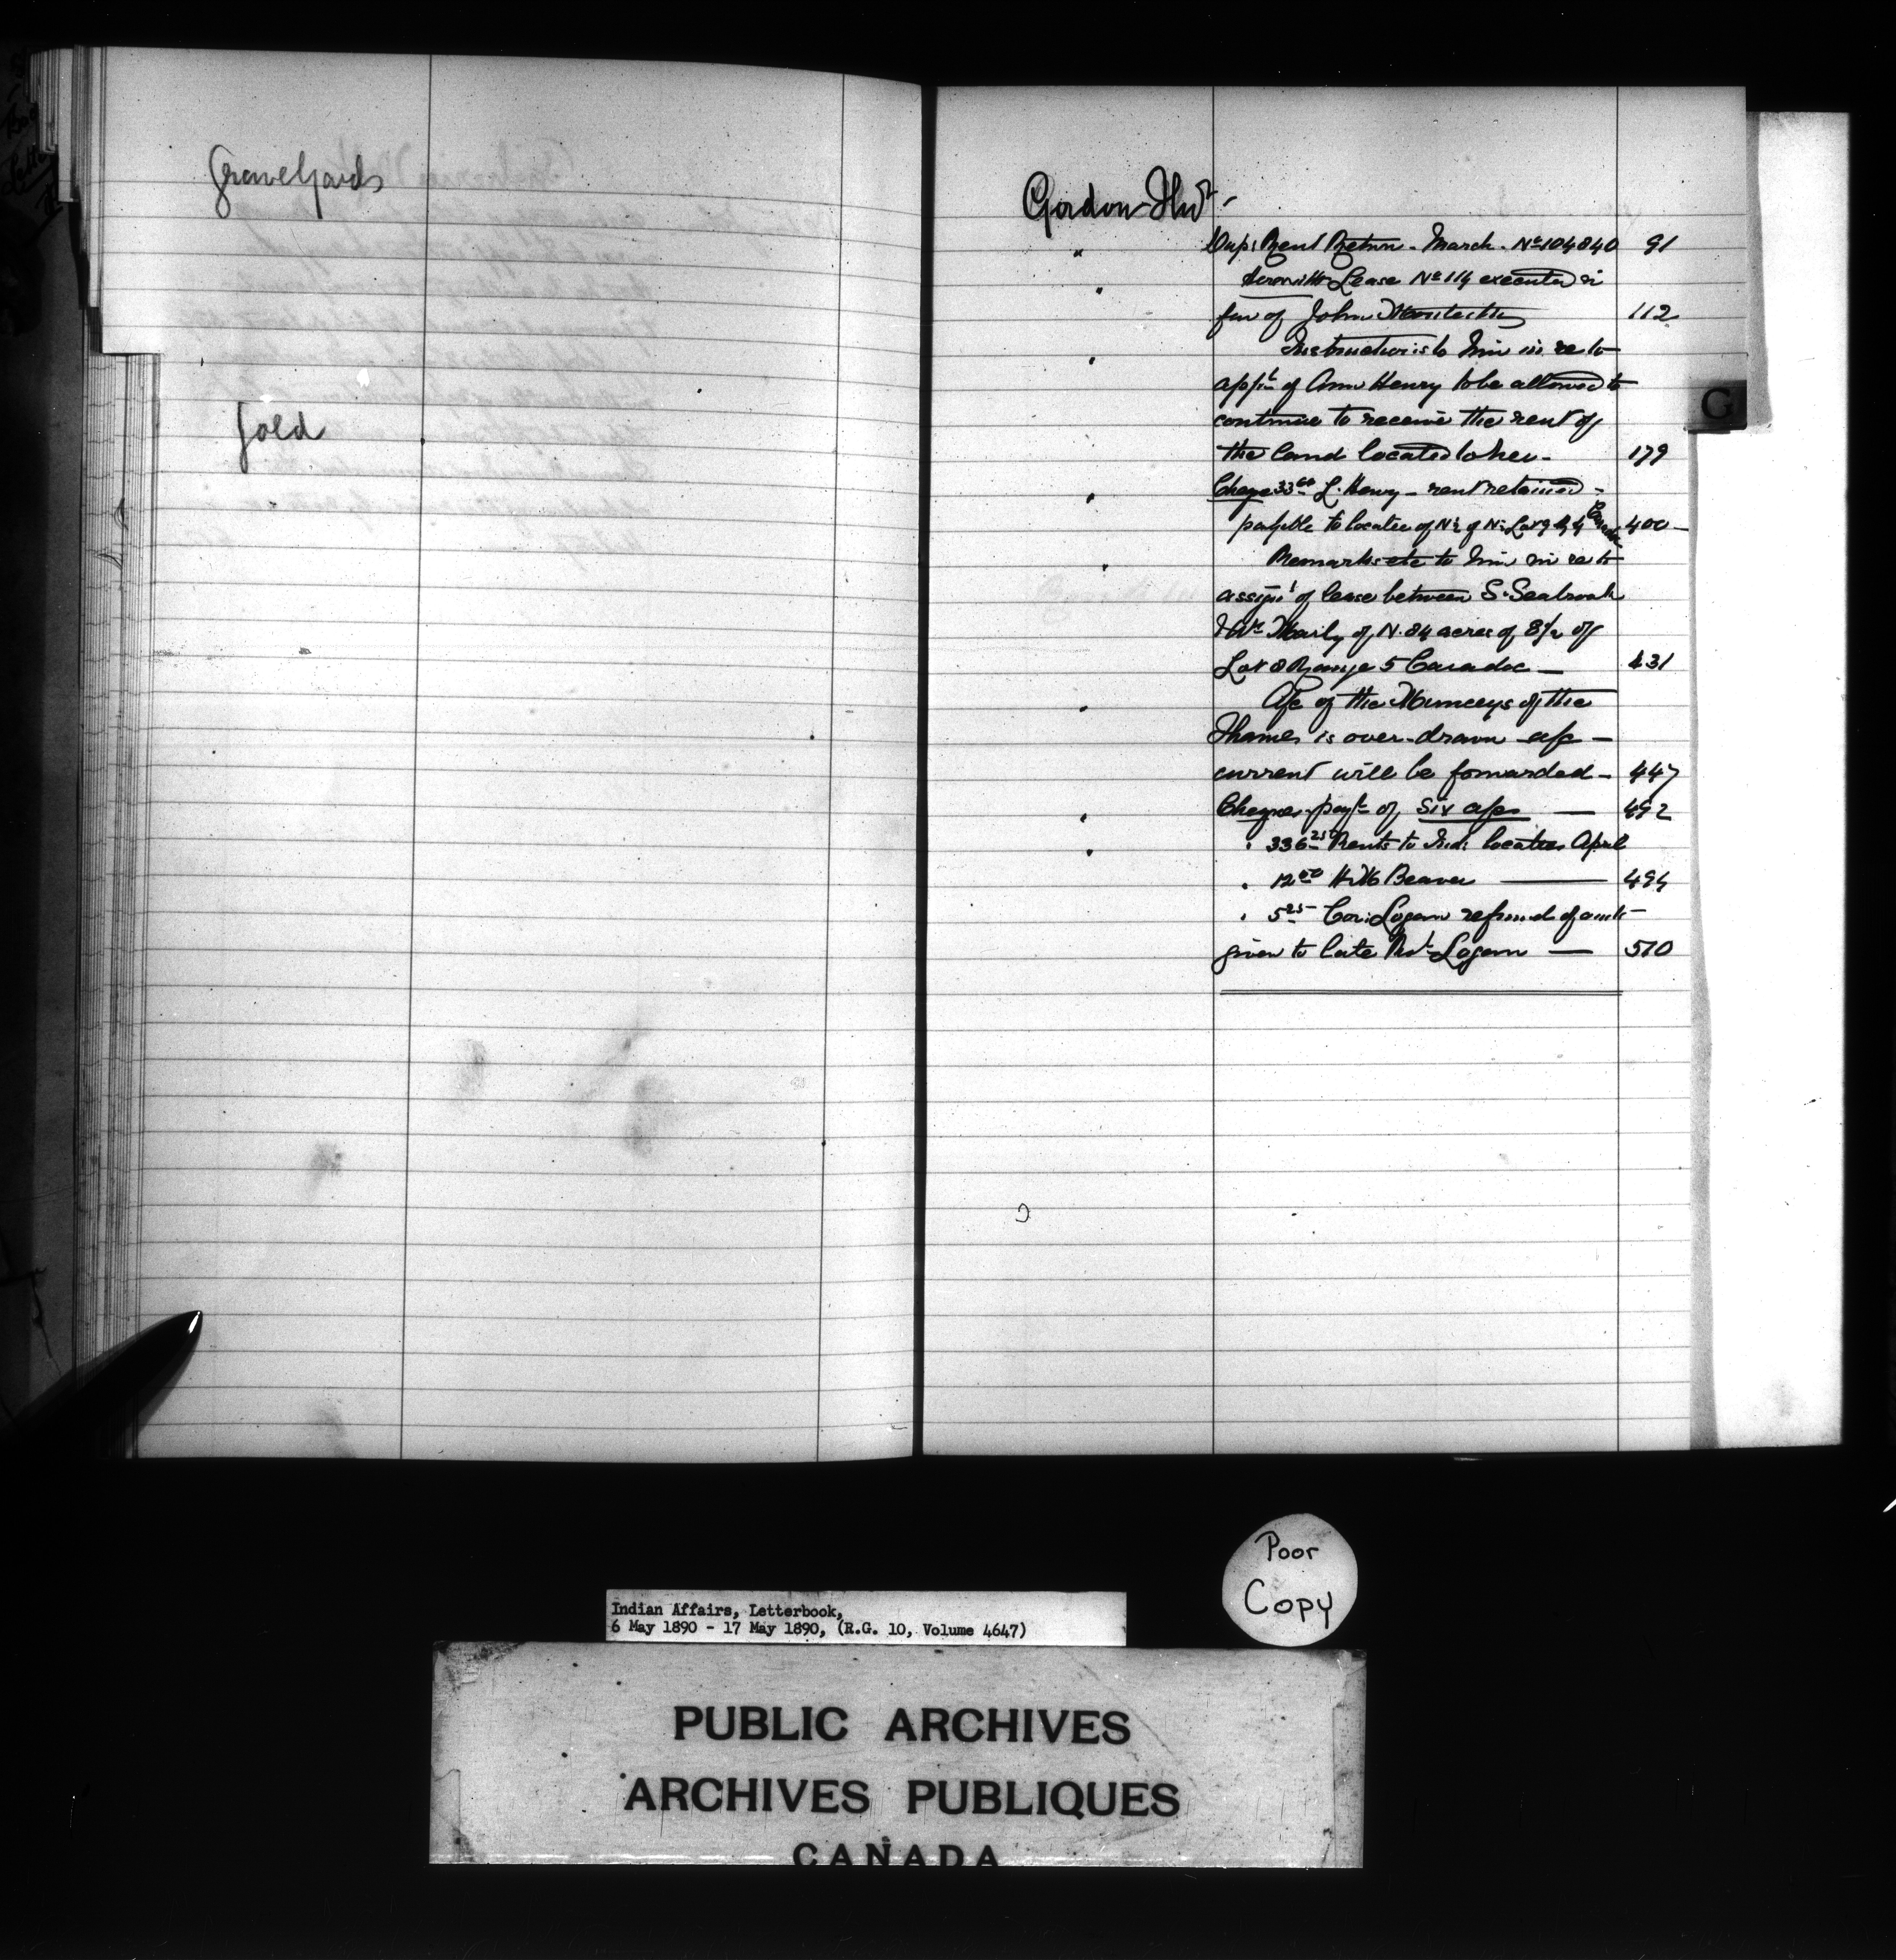 Graveyards
Gold
Gordon Thos -
" Dup: Rent Return - March - No 104840 91
" Herewith Lease No 114 executed in
fav of John 112
" Instructions to him in re to
appln of Ann Henry to be allowed to
continue to receive the rent of
the land located to her - 179
" Cheque 33 L. Henry - rent retained -
payable to locatee of N½ of N½ Lot 9 R 4 Caradoc 400 -
" Remarks etc to him in re to
assignt of lease between S. Seabrook
& Wm of N. 84 acres of S½ of
Lot 8 Range 5 Caradoc - 431
" A/c of the Munceys of the
Thames is over-drawn a/c -
current will be forwarded - 447
" Cheques - payt of six a/cs - 492
" " 336 25 Rents to Ind: locatees April
" 12 00 H. W. Beaver - 494
" 5 25 Cor: Logan refund of amt -
given to late Rbt Logan - 510
G
Poor
Copy
Indian Affairs, Letterbook,
6 May 1890 - 17 May 1890, (R.G. 10, Volume 4647)
PUBLIC ARCHIVES
ARCHIVES PUBLIQUES
CANADA